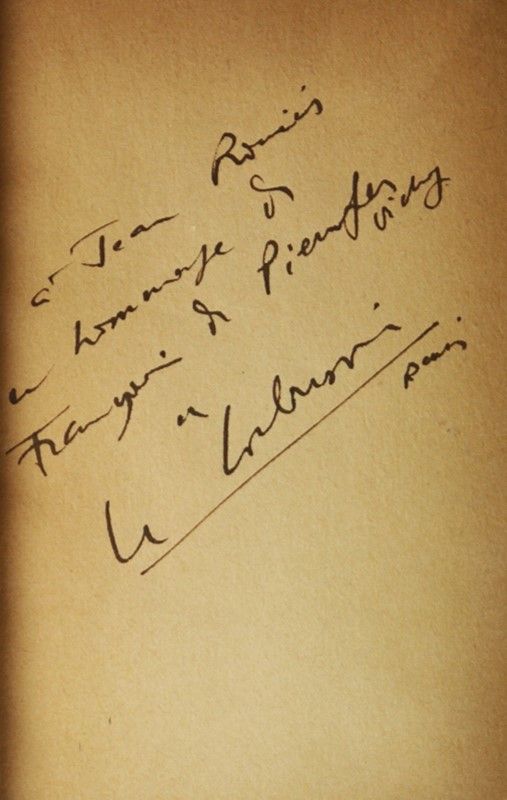 à Jean
en hommage de
François de Pierrefeu
Vichy
Le Corbusier
Paris